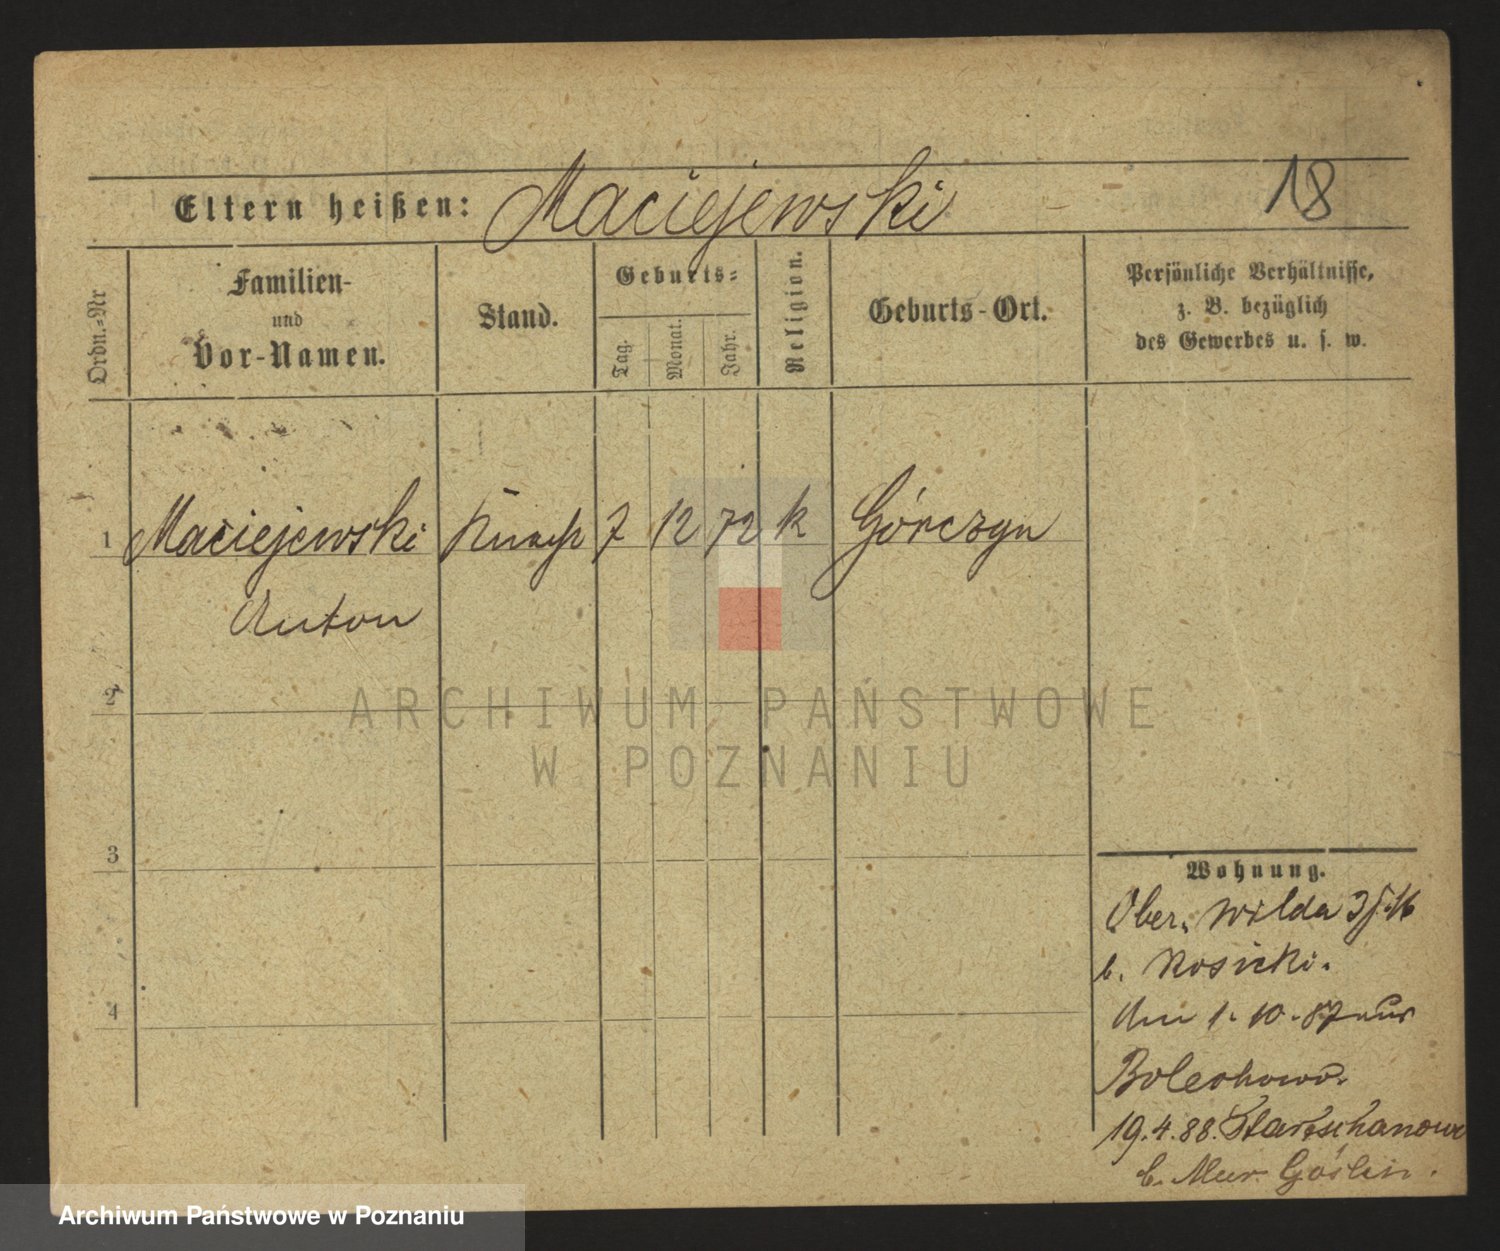 18
Eltern heißen: Maciejewski
Ordn.-Nr
Familien-
und
Vor-Namen.
Stand.
Geburts-
Tag.
Monat.
Jahr.
Religion.
Geburts-Ort.
Persönliche Verhältnisse,
z. B. bezüglich
des Gewerbes u. s. w.
1 Maciejewski Knecht 7 12 72 k Górczyn
Anton
2
3
4
Wohnung.
Ober. Wilda
b. Rosicki.
Am 1. 10. 87 aus
Bolechowo.
19.4.88. Startschanowo
b. Mur. Goslin.
ARCHIWUM PAŃSTWOWE
W POZNANIU
Archiwum Państwowe w Poznaniu